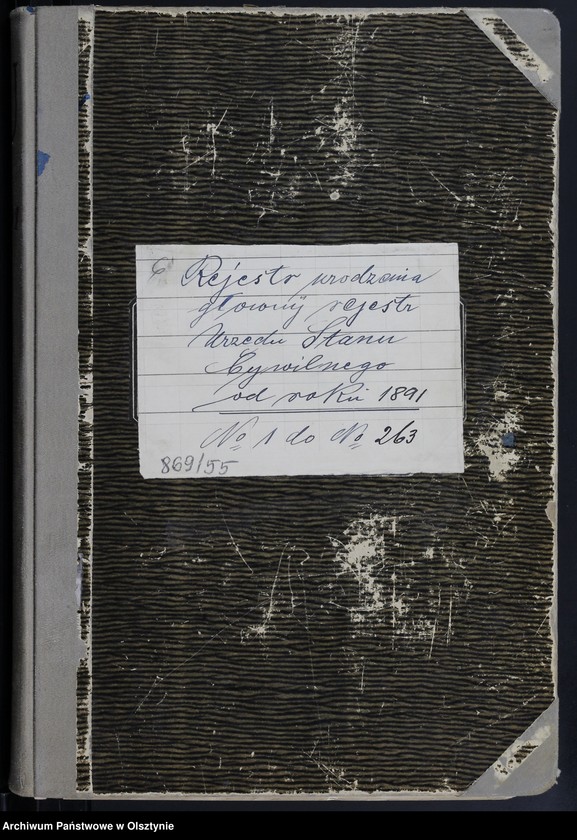 Rejestr urodzenia
głowny rejestr
Urzedu Stanu
Cywilnego
od roku 1891
No 1 do No 263
869/55
Archiwum Państwowe w Olsztynie